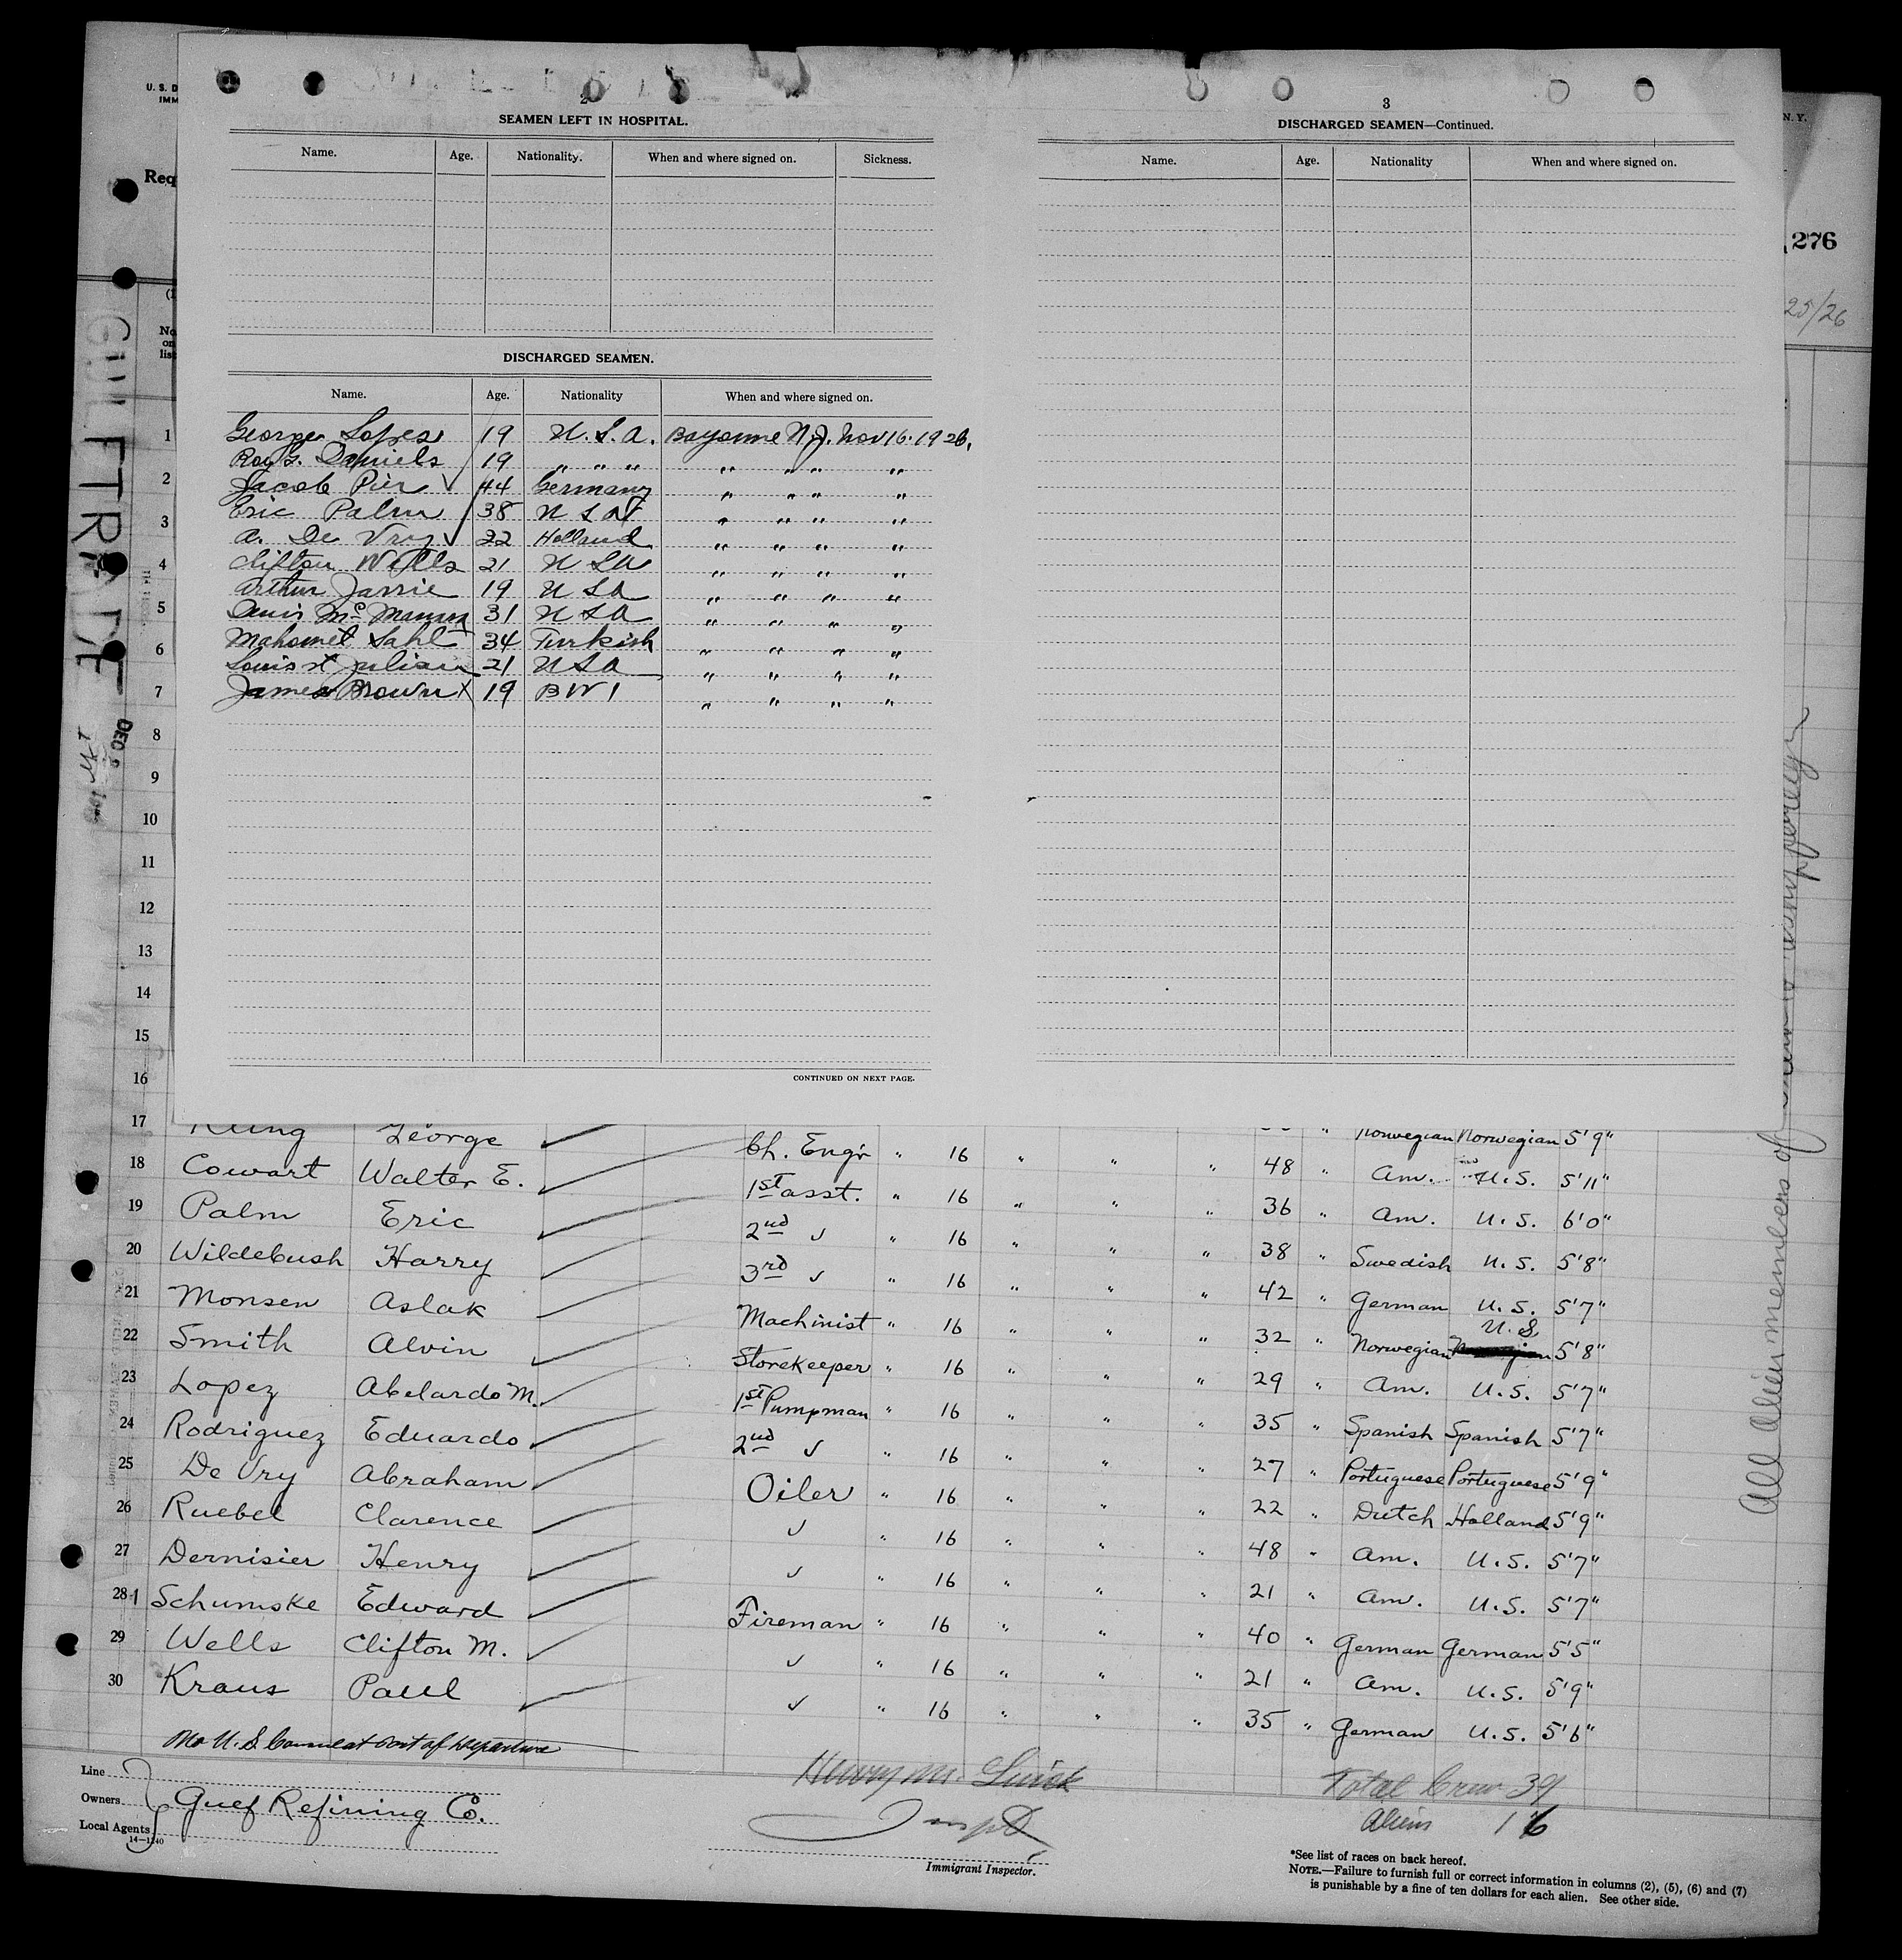 U. S. D
IMM
Req
N. Y.
276
25/26
GULFTRADE
DEC
2
SEAMEN LEFT IN HOSPITAL.
Name. Age. Nationality. When and where signed on. Sickness.
DISCHARGED SEAMEN.
Name. Age. Nationality When and where signed on.
George Lopes 19 U. S. A. Bayonne N.J. Nov 16. 1926.
Roy S. Daniels 19 " " " " " " "
Jacob Pier 44 Germany " " " "
Eric Palm 38 U S A " " " "
A. De Vry 22 Holland " " " "
Clifton Wells 21 U S A " " " "
Arthur Jarvie 19 U S A " " " "
31 U S A " " " "
Mahomet Sahl 34 Turkish " " " "
Louis St Julian 21 U S A " " " "
James Brown X 19 B W I " " " "
CONTINUED ON NEXT PAGE.
3
DISCHARGED SEAMEN—Continued.
Name. Age. Nationality When and where signed on.
No.
on
list
1
2
3
4
5
6
7
8
9
10
11
12
13
14
15
16
17 Kling George Norwegian Norwegian 5'9"
18 Cowart Walter E. Ch. Engr " 16 " " " 48 " Am. U.S. 5'11"
19 Palm Eric 1st asst. " 16 " " " 36 " Am. U.S. 6'0"
20 Wildebush Harry 2nd ✓ " 16 " " " 38 " Swedish U.S. 5'8"
21 Monsen Aslak 3rd ✓ " 16 " " " 42 " German U.S. 5'7"
22 Smith Alvin Machinist " 16 " " " 32 " Norwegian U.S. 5'8"
23 Lopez Abelardo M. Storekeeper " 16 " " " 29 " Am. U.S. 5'7"
24 Rodriguez Eduardo 1st Pumpman " 16 " " " 35 " Spanish Spanish 5'7"
25 De Vry Abraham 2nd ✓ " 16 " " " 27 " Portuguese Portuguese 5'9"
26 Ruebel Clarence Oiler " 16 " " " 22 " Dutch Holland 5'9"
27 Dernisier Henry ✓ " 16 " " " 48 " Am. U.S. 5'7"
28 Schumske Edward ✓ " 16 " " " 21 " Am. U.S. 5'7"
29 Wells Clifton M. Fireman " 16 " " " 40 " German German 5'5"
30 Kraus Paul ✓ " 16 " " " 21 " Am. U.S. 5'9"
✓ " 16 " " " 35 " German U.S. 5'6"
No U.S. Consul at port of departure
Line
Owners Gulf Refining Co.
Local Agents
14—1240
Henry M.
Inspt
Immigrant Inspector.
Total Crew 39
Aliens 16
*See list of races on back hereof.
NOTE.—Failure to furnish full or correct information in columns (2), (5), (6) and (7)
is punishable by a fine of ten dollars for each alien. See other side.
All Alien members of